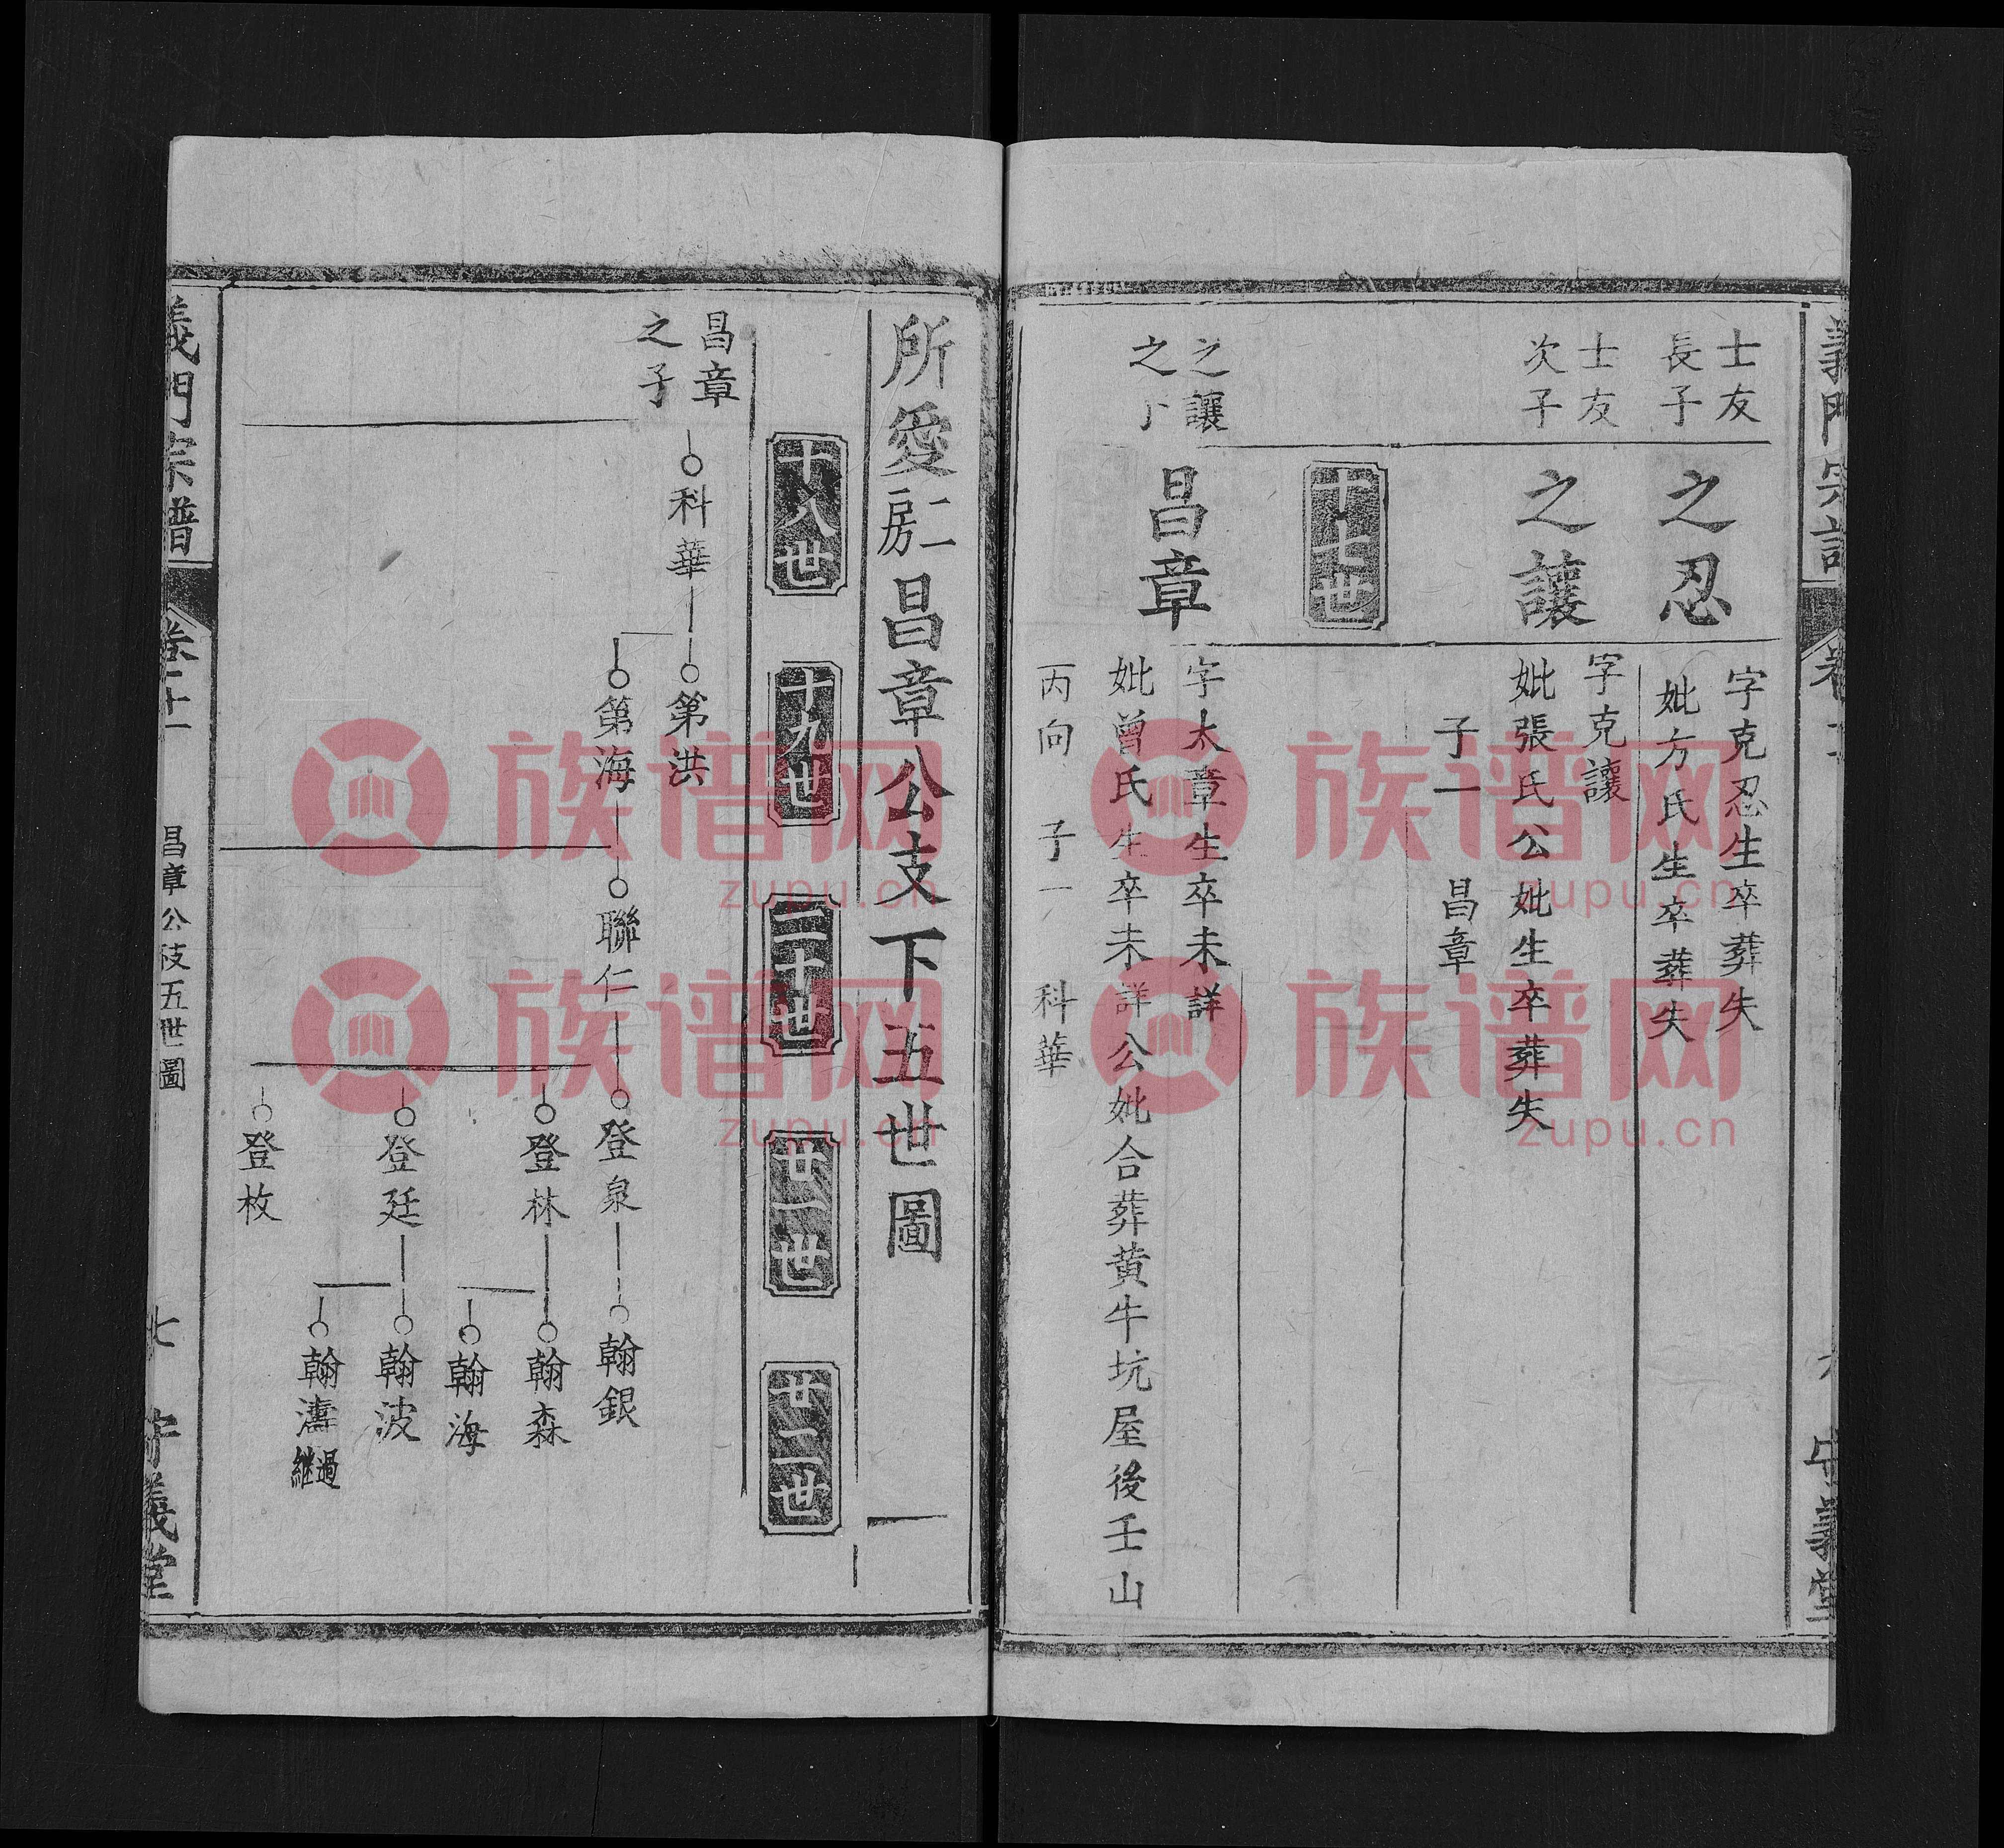 義門宗譜
士友
長子
之忍
字克忍生卒葬失
妣方氏生卒葬失
士友
次子
之讓
字克讓
妣張氏公妣生卒葬失
子一　昌章
十七世
之讓
之
昌章
字太章生卒未詳
妣曾氏生卒未詳公妣合葬黄牛坑屋後壬山
丙向　子一　科華
守義堂
所愛二房昌章公支下五世圖
一
十八世
十九世
二十世
廿一世
廿二世
昌章
之子
科華
第洪
第海
聯仁
登泉
翰銀
登林
翰森
翰海
登廷
翰波
翰濤
過
繼
登枚
義門宗譜
卷二十一
昌章公枝五世圖
七
守義堂
族谱网
zupu.cn
族谱网
zupu.cn
族谱网
zupu.cn
族谱网
zupu.cn